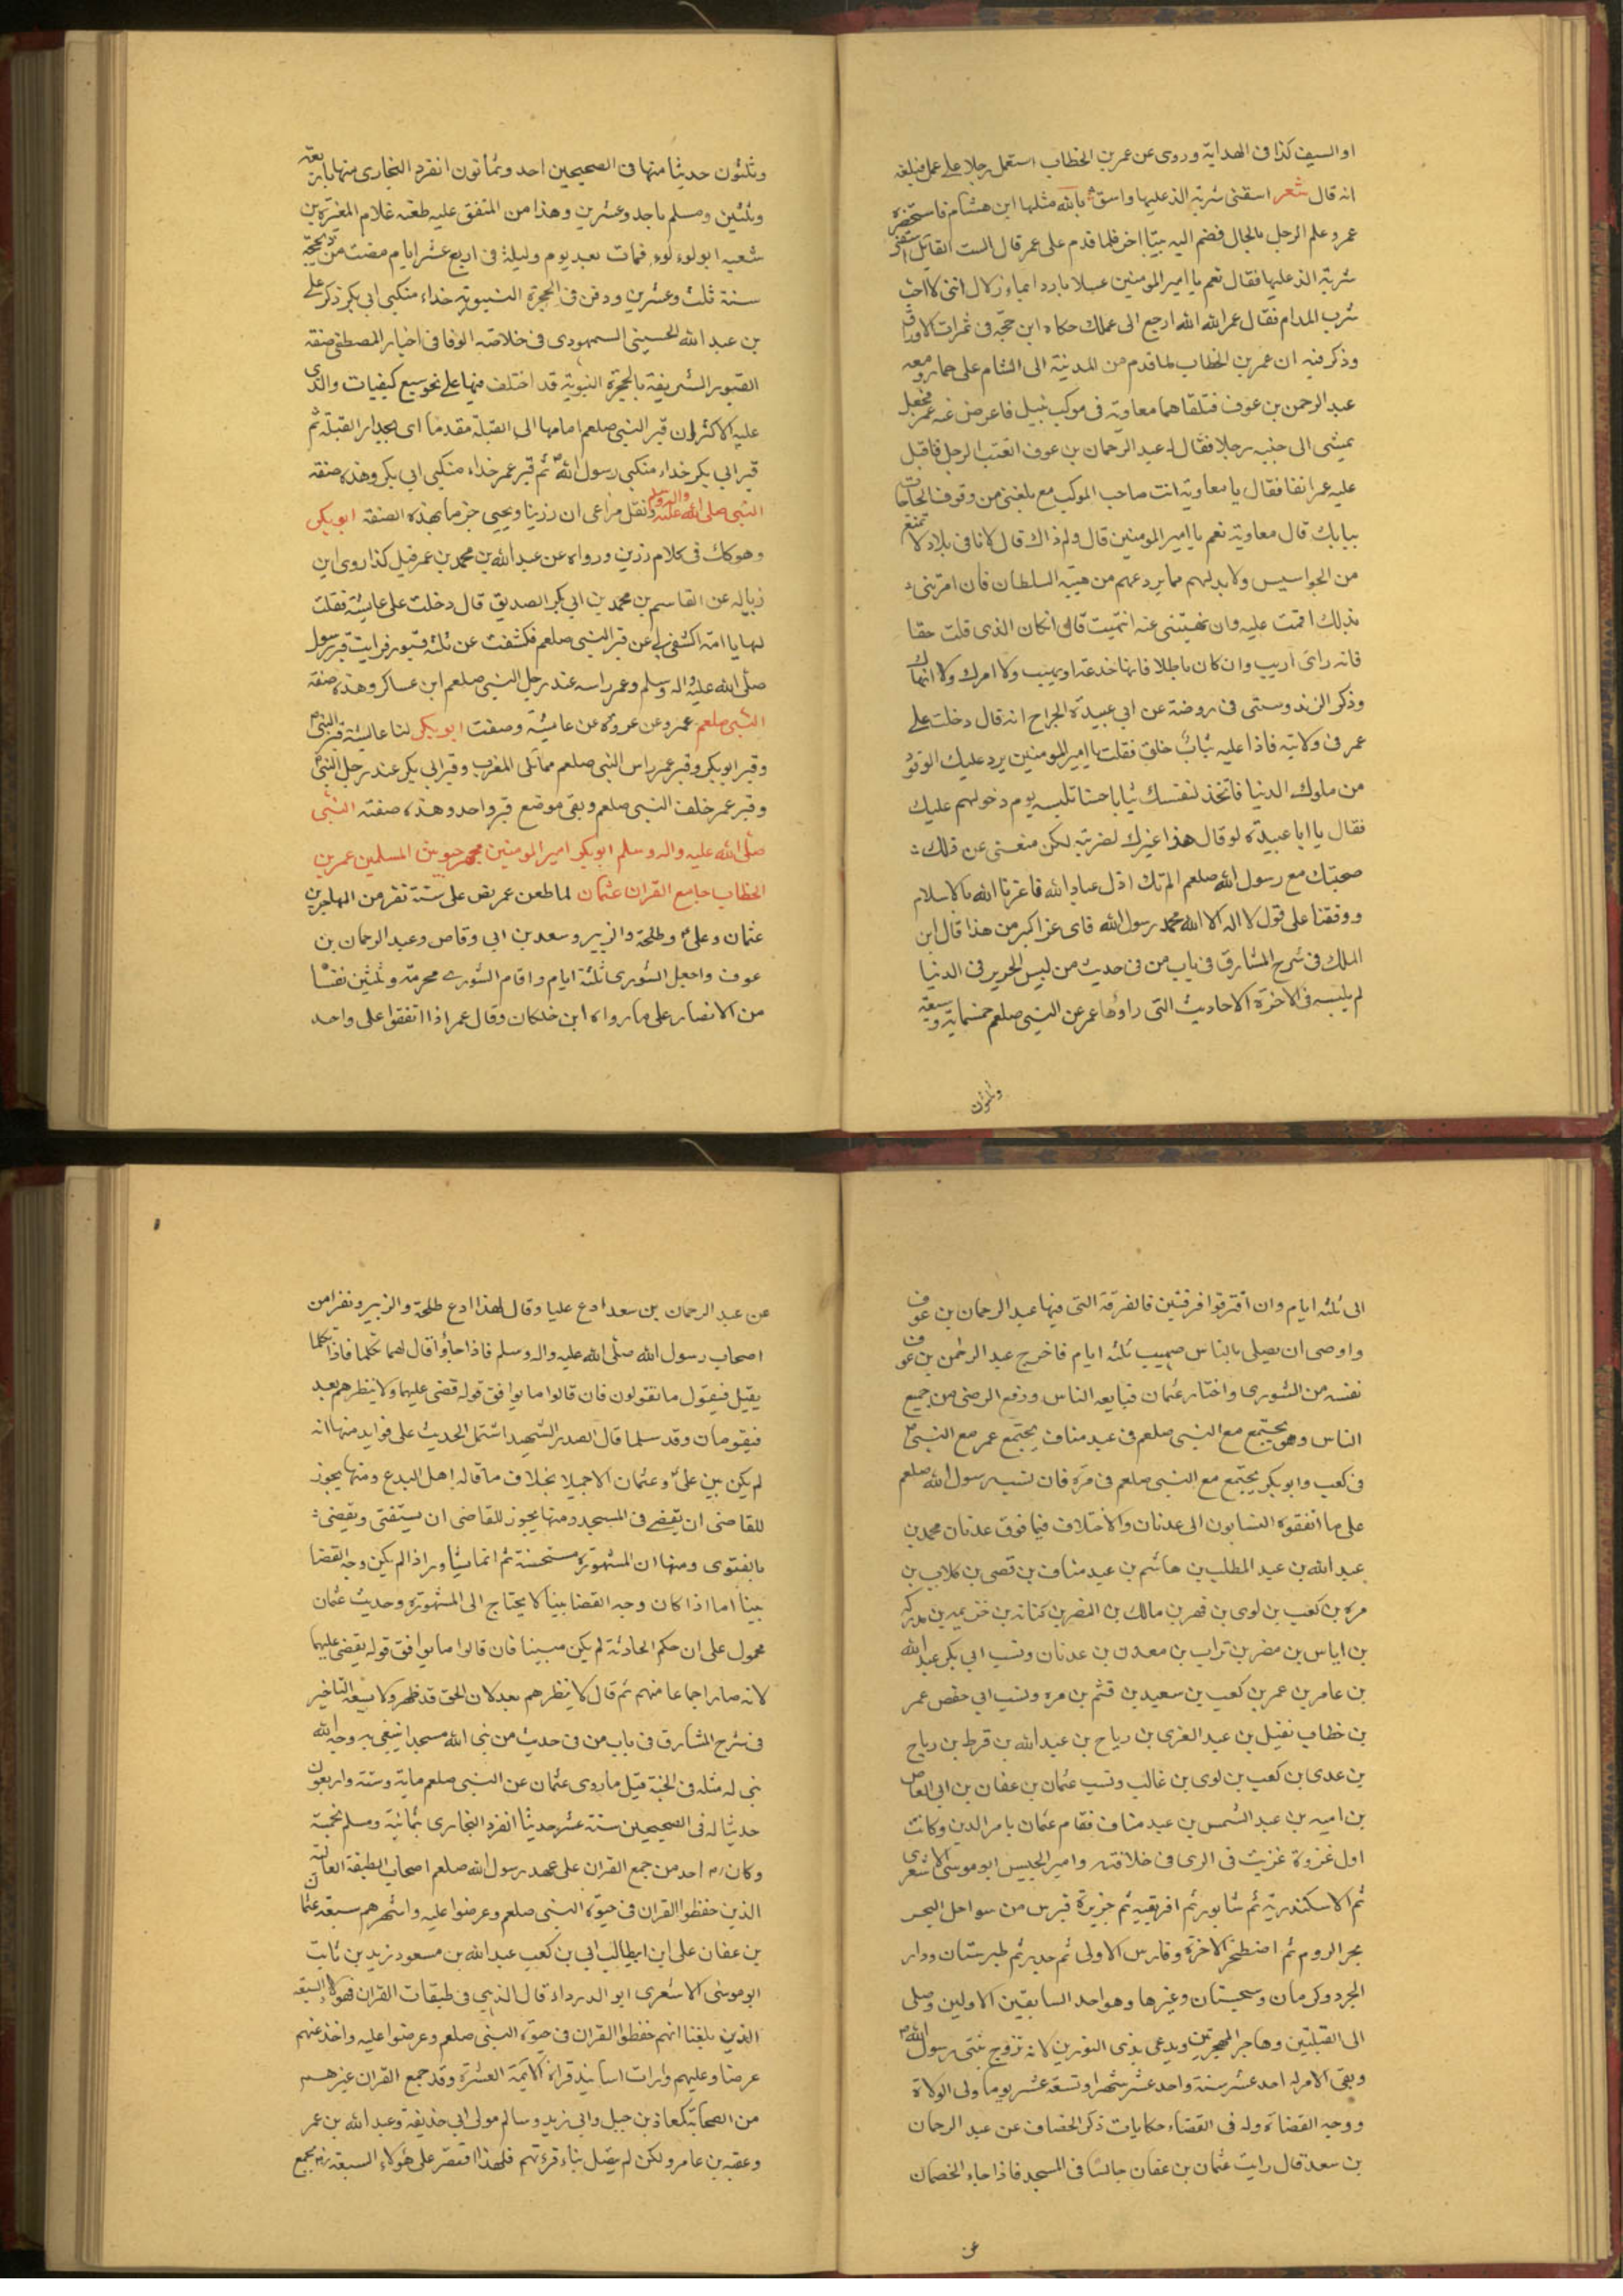 او السيف كذا فى الهداية وروى عن عمر بن الخطاب استعمل رجلا على عمل فبلغه
انه قال شعر اسقنى شربة الذ عليها واسق بالله مثلها ابن هشام فاستحضره
عمر وعلم الرجل بالحال فضم اليه بيتا اخر فلما قدم على عمر قال الست القايل اسقنى
شربة الذ عليها فقال نعم يا امير المومنين عسلا باردا بماء زلال اننى لا احب
شرب المدام فقال عمر الله الله ارجع الى عملك حكاه ابن حجة فى ثمرات الاوراق
وذكر فيه ان عمر بن الخطاب لما قدم من المدينة الى الشام على حمار ومعه
عبد الرحمن بن عوف فتلقاهما معاوية فى موكب نبيل فاعرض عنه عمر فجعل
يمشى الى جنبه رجلا فقال له عبد الرحمان بن عوف اتعبت الرجل فاقبل
عليه عمر انفا فقال يا معاوية انت صاحب الموكب مع بلغنى من وقوف الحاجات
ببابك قال معاوية نعم يا امير المومنين قال ولم ذاك قال لانا فى بلاد لا تمتنع
من الجواسيس ولا بد لهم مما يردعهم من هيبة السلطان فان امرتنى
بذلك اقمت عليه وان نهيتنى عنه انتهيت قال ان كان الذى قلت حقا
فانه راى اريب وان كان باطلا فانها خدعة اديب ولا امرك ولا انهاك
وذكر الزندوستى فى روضة عن ابى عبيدة الجراح انه قال دخلت على
عمر فى ولايته فاذا عليه ثياب خلق فقلت يا امير المومنين يرد عليك الوفود
من ملوك الدنيا فاتخذ لنفسك ثيابا حسنا تلبسه يوم دخولهم عليك
فقال يا ابا عبيدة لو قال هذا غيرك لضربته لكن منعنى عن ذلك
صحبتك مع رسول الله صلعم الم تك اذل عباد الله فاعزنا الله بالاسلام
ووفقنا على قول لا اله الا الله محمد رسول الله فاى عز اكبر من هذا قال ابن
الملك فى شرح المشارق فى باب من فى حديث من لبس الحرير فى الدنيا
لم يلبسه فى الاخرة الاحاديث التى راوها عمر عن النبى صلعم خمسماية وسبعة
وثلثون
وثلثون حديثا منها فى الصحيحين احد وثمانون انفرد البخارى منها باربعة
وثلثين ومسلم باحد وعشرين وهذا من المتفق عليه طعنه غلام المغيرة بن
شعبه ابو لوء لوء فمات بعد يوم وليلة فى اربع عشر ايام مضت من ذى الحجة
سنة ثلث وعشرين ودفن فى الحجرة النبوية حذاء منكبى ابى بكر ذكر على
بن عبد الله الحسينى السمهودى فى خلاصة الوفا فى اخبار المصطفى صفة
القبور الشريفة بالحجرة النبوية قد اختلف فيها على نحو سبع كيفيات والذى
عليه الاكثر ان قبر النبى صلعم امامها الى القبلة مقدما اى بجدار القبلة ثم
قبر ابى بكر حذاء منكبى رسول الله ثم قبر عمر حذاء منكبى ابى بكر وهذه صفة
النبى صلى الله عليه واله وسلم ونقل مراعى ان رزينا ويحيى جزما بهذه الصفة ابو بكر
وهو كان فى كلام رزين ورواه عن عبد الله بن محمد بن عمر قيل كذا روى ابن
زباله عن القاسم بن محمد بن ابى بكر الصديق قال دخلت على عايشة فقلت
لها يا امة اكشفى لى عن قبر النبى صلعم فكشفت عن ثلثة قبور فرايت قبر رسول
صلى الله عليه واله وسلم وعمر راسه عند رجل النبى صلعم ابن عساكر وهذه صفة
النبى صلعم عمر وعن عروة عن عايشة وصفت ابو بكر لنا عايشة قبر النبى
وقبر ابو بكر وقبر عمر راس النبى صلعم مما تلى المغرب وقبر ابى بكر عند رجل النبى
وقبر عمر خلف النبى صلعم وبقى موضع قبر واحد وهذه صفته النبى
صلى الله عليه واله وسلم ابو بكر امير المومنين مجهز جيوش المسلمين عمر بن
الخطاب جامع القران عثمان لما طعن عمر نص على ستة نفر من المهاجرين
عثمان وعلى وطلحة والزبير وسعد بن ابى وقاص وعبد الرحمان بن
عوف واجعل الشورى ثلثة ايام واقام الشورى مخرمة وثلثين نفسا
من الانصار على ما رواه ابن خلكان وقال عمر اذا اتفقوا على واحد
الى ثلثه ايام وان افترقوا فرقتين فالفرقة التى فيها عبد الرحمان بن عوف
واوصى ان يصلى بالناس صهيب ثلثه ايام فاخرج عبد الرحمن بن عوف
نفسه من الشورى واختار عثمان فبايعه الناس ووقع الرضى من جميع
الناس وهو يجتمع مع النبى صلعم فى عبد مناف يجتمع عمر مع النبى
فى كعب وابو بكر يجتمع مع النبى صلعم فى مرة فان نسب رسول الله صلعم
على ما اتفقوه النسابون الى عدنان والاختلاف فيما فوق عدنان محمد بن
عبد الله بن عبد المطلب بن هاشم بن عبد مناف بن قصى بن كلاب بن
مره بن كعب بن لوى بن فهر بن مالك بن النضر بن كنانه بن خزيمه بن مدركه
بن اياس بن مضر بن تراب بن معد بن عدنان ونسب ابى بكر عبد الله
بن عامر بن عمر بن كعب بن سعيد بن قثم بن مره ونسب ابى حفص عمر
بن خطاب نفيل بن عبد العزى بن رياح بن عبد الله بن قرط بن رباح
بن عدى بن كعب بن لوى بن غالب ونسب عثمان بن عفان بن ابى العاص
بن اميه بن عبد الشمس بن عبد مناف فقام عثمان بامر الدين وكانت
اول غزوة غزيت فى الرى فى خلافته وامير الجيش ابو موسى الاشعرى
ثم الاسكندرية ثم شابور ثم افريقيه ثم جزيرة قبرس من سواحل البحر
بحر الروم ثم اصطخر الاخرة وفارس الاولى ثم ثم طبرستان ودار
الجرد وكرمان وسجستان وغيرها وهو احد السابقين الاولين وصلى
الى القبلتين وهاجر الهجرتين ويدعى بذى النورين لانه تزوج بنتى رسول الله
وبقى الامر له احد عشر سنة واحد عشر شهرا وتسعة عشر يوما ولى الولاة
ووجه القضاة وله فى القضاء حكايات ذكر الخصاف عن عبد الرحمان
بن سعد قال رايت عثمان بن عفان جالسا فى المسجد فاذا جاء الخصمان
عن
عن عبد الرحمان بن سعد ادع عليا وقال لهذا ادع طلحة والزبير ونفرا من
اصحاب رسول الله صلى الله عليه واله وسلم فاذا جاؤا قال لهما تكلما فاذا تكلما
يقبل فيقول ما تقولون فان قالوا ما يوافق قوله قضى عليهما ولا ينظرهم بعد
فيقومان وقد سلما قال الصدر الشهيد اشتمل الحديث على فوايد منها انه
لم يكن بين على وعثمان الا جميلا بخلاف ما قاله اهل البدع ومنها يجوز
للقاضى ان يقضى فى المسجد ومنها يجوز للقاضى ان يستفتى ويقضى
بالفتوى ومنها ان المشهورة مستحسنة ثم انما يشاور اذا لم يكن وجه القضا
بينا اما اذا كان وجه القضا بينا لا يحتاج الى المشهورة وحديث عثمان
محمول على ان حكم الحادثة لم يكن مبينا فان قالوا ما يوافق قوله يقضى عليهما
لانه صار اجماعا منهم ثم قال لا ينظرهم بعد لان الحق قد ظهر ولا يسعه التاخير
فى شرح المشارق فى باب من فى حديث من بنى الله مسجدا يبتغى به وجه الله
بنى له مثله فى الجنة قيل ما روى عثمان عن النبى صلعم ماية وستة واربعون
حديثا له فى الصحيحين ستة عشر حديثا انفرد البخارى بثمانية ومسلم بخمسة
وكان احد من جمع القران على عهد رسول الله صلعم اصحاب الطبقة العالية
الذين حفظوا القران فى حيوة النبى صلعم وعرضوا عليه واشهرهم سبعة عثمان
بن عفان على ابن ابيطالب ابى بن كعب عبد الله بن مسعود زيد بن ثابت
ابو موسى الاشعرى ابو الدرداء قال الذهبى فى طبقات القران فهولاء السبعه
الذين بلغنا انهم حفظوا القران فى حيوة النبى صلعم وعرضوا عليه واخذ عنهم
عرضا وعليهم دارت اسانيد قراة الايمة العشرة وقد جمع القران غيرهم
من الصحابة كمعاذ بن جبل وابى زيد وسالم مولى ابى حذيفة وعبد الله بن عمر
وعقبه بن عامر ولكن لم يتصل بناء قرءتهم فلهذا اقتصر على هولاء السبعة جمع